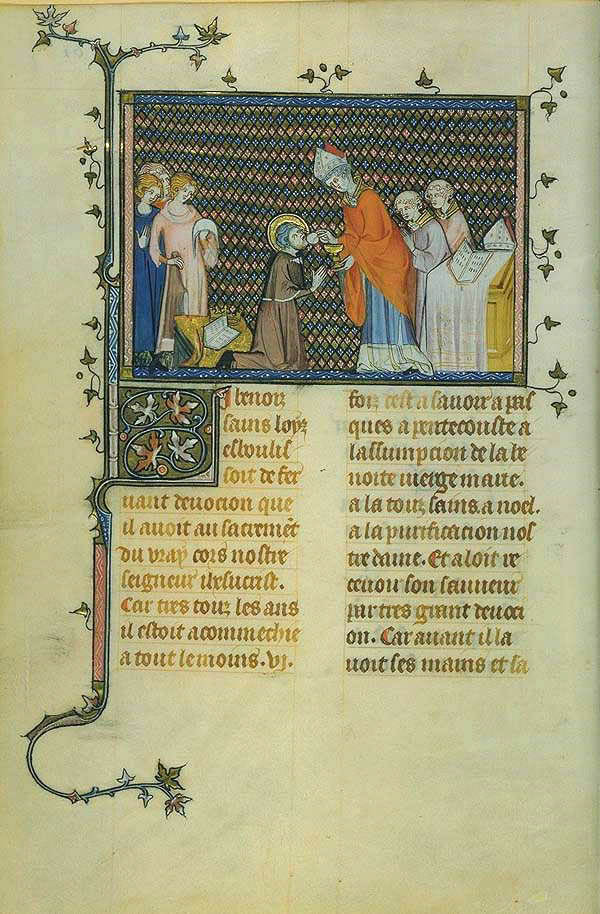 i benoiz
sains loys
esboulis
soit de fer
uant deuocion que
il auoit au sacremēt
du vray cors nostre
seigneur ihesucrist.
Car tres touz les ans
il estoit acommechie
a tout le moins. vj.
foiz cest a sauoir a pas
ques a penteconste a
lassumpcion de la be
noite uierge marie.
a la touz sains. a noel.
a la purificacion nos
tre dame. Et aloit re
ceuoir son sauueur
par tres grant deuoci
on. Car auant il la
uoit ses mains et sa